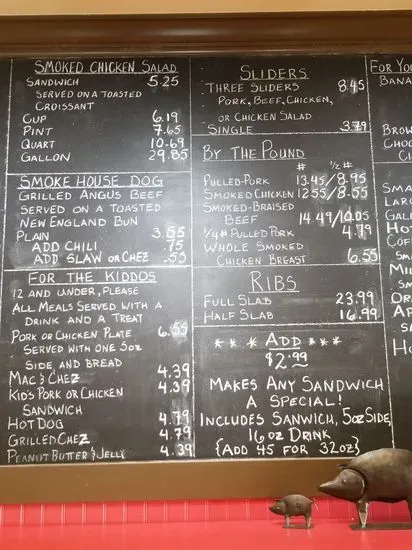 SMOKED CHICKEN SALAD
SANDWICH 5.25
SERVED ON A TOASTED
CROISSANT
CUP 6.19
PINT 7.65
QUART 10.69
GALLON 29.85
SMOKE HOUSE DOG
GRILLED ANGUS BEEF
SERVED ON A TOASTED
NEW ENGLAND BUN
PLAIN 3.55
ADD CHILI .75
ADD SLAW OR CHEZ .55
FOR THE KIDDOS
12 AND UNDER, PLEASE
ALL MEALS SERVED WITH A
DRINK AND A TREAT
PORK OR CHICKEN PLATE 6.55
SERVED WITH ONE 5OZ
SIDE AND BREAD
MAC & CHEZ 4.39
KID'S PORK OR CHICKEN 4.39
SANDWICH
HOT DOG 4.79
GRILLED CHEZ 4.79
PEANUT BUTTER & JELLY 4.39
SLIDERS
THREE SLIDERS 8.45
PORK, BEEF, CHICKEN,
OR CHICKEN SALAD
SINGLE 3.79
BY THE POUND
# ½#
PULLED PORK 13.45/8.95
SMOKED CHICKEN 12.55/8.55
SMOKED-BRAISED
BEEF 14.49/10.05
¼# PULLED PORK 4.79
WHOLE SMOKED
CHICKEN BREAST 6.55
RIBS
FULL SLAB 23.99
HALF SLAB 16.99
* * * ADD * * *
$2.99
MAKES ANY SANDWICH
A SPECIAL!
INCLUDES SANWICH, 5OZ SIDE,
16 OZ DRINK
{ADD 45 FOR 32OZ}
FOR YO
BANA
BROW
CHOC